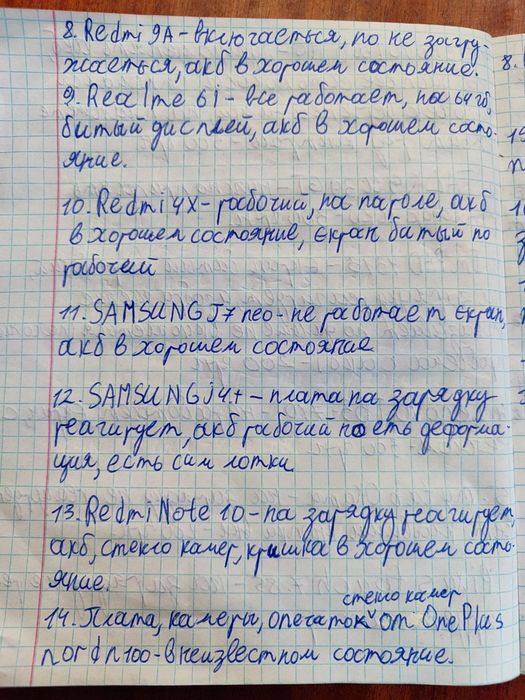 8. Redmi 9A - включається, но не загру-
жаеться, акб в хорошем состояние.
9. Realme 6i - все работает, на 64 гб,
битый дисплей, акб в хорошем состо-
яние.
10. Redmi 4X - рабочий, на пароле, акб
в хорошем состояние, єкран битый но
рабочей
11. SAMSUNG J7 neo - не работает єкран,
акб в хорошем состояние
12. SAMSUNG j4+ - плата на зарядку
реагирует, акб рабочий но еть деформа-
ция, есть сим лотки
13. Redmi Note 10 - на зарядку реагирует,
акб, стекло камер, крышка в хорошем состо-
яние.
стекло камер
14. Плата, камеры, опечаток от OnePlus
nord n100 - в неизвестном состояние.
8.